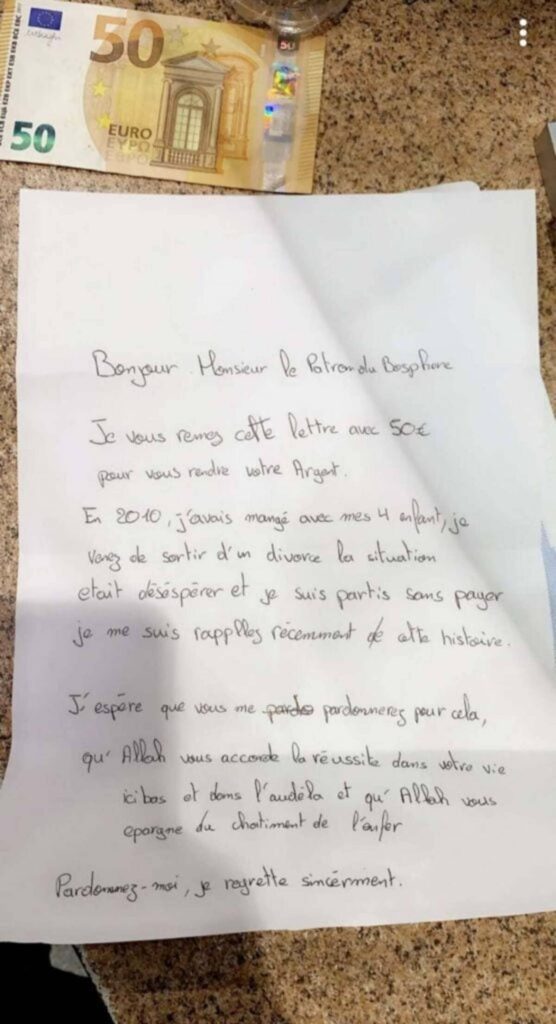 50
EURO
ΕΥΡΩ
ЕВРО
50
50
Bonjour Monsieur le Patron du Bosphore
Je vous remez cette lettre avec 50€
pour vous rendre votre Argent.
En 2010, j'avais mangé avec mes 4 enfant, je
venez de sortir d'un divorce la situation
etait désésperer et je suis partis sans payer
je me suis rappllez récemment de cette histoire.
J'espère que vous me pardo pardonnerez pour cela,
qu'Allah vous accorde la réussite dans votre vie
ici bas et dans l'audéla et qu'Allah vous
epargne du chatiment de l'enfer
Pardonnez-moi, je regrette sincèrment.